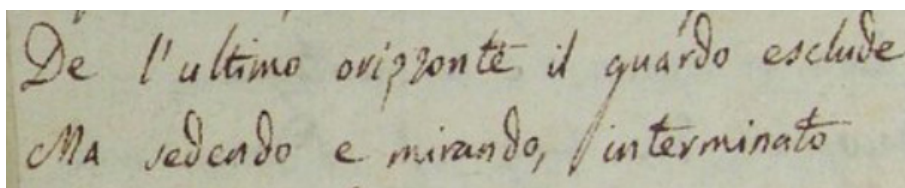 De l'ultimo orizzonte il guardo esclude
Ma sedendo e mirando, interminato